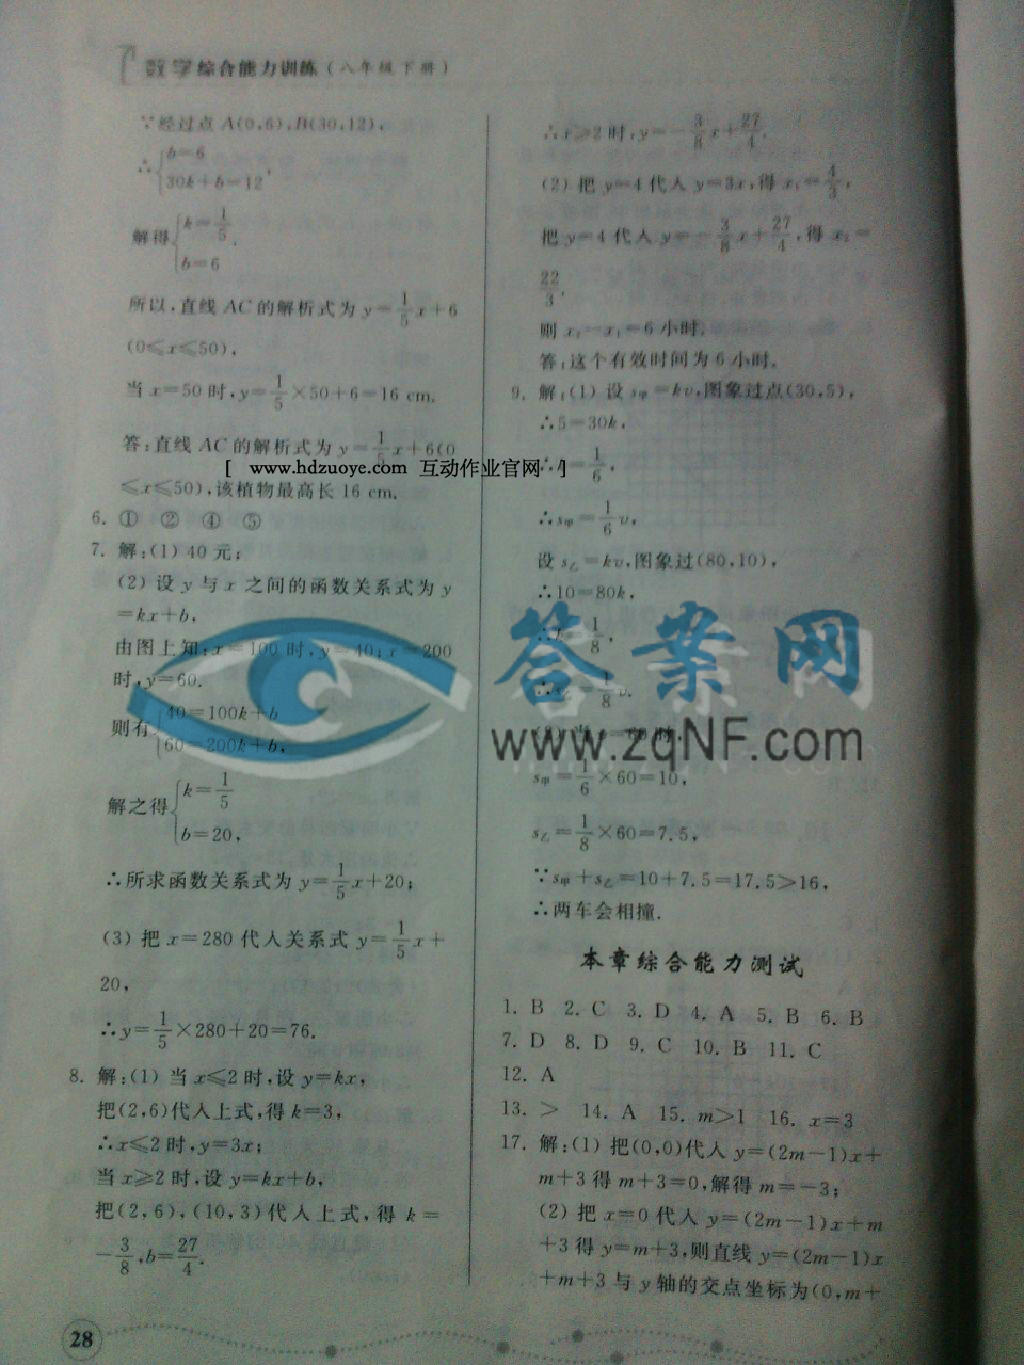 数学综合能力训练(八年级下册)
∵经过点 A(0,6),B(30,12),
∴{b=6
30k+b=12,
解得{k=1/5
b=6.
所以,直线 AC 的解析式为 y=1/5x+6
(0≤x≤50),
当 x=50 时,y=1/5×50+6=16 cm.
答:直线 AC 的解析式为 y=1/5x+6(0
≤x≤50),该植物最高长 16 cm.
6. ① ② ④ ⑤
7. 解:(1) 40 元;
(2) 设 y 与 x 之间的函数关系式为 y
=kx+b,
由图上知:x=100 时,y=40;x=200
时,y=60.
则有{40=100k+b
60=200k+b,
解之得{k=1/5
b=20,
∴所求函数关系式为 y=1/5x+20;
(3) 把 x=280 代入关系式 y=1/5x+
20,
∴y=1/5×280+20=76.
8. 解:(1) 当 x≤2 时,设 y=kx,
把(2,6)代入上式,得 k=3,
∴x≤2 时,y=3x;
当 x≥2 时,设 y=kx+b,
把(2,6),(10,3)代入上式,得 k=
-3/8,b=27/4.
28
∴x≥2 时,y=-3/8x+27/4.
(2) 把 y=4 代入 y=3x,得 x₁=4/3,
把 y=4 代入 y=-3/8x+27/4,得 x₂=
22/3,
则 x₂-x₁=6 小时.
答:这个有效时间为 6 小时.
9. 解:(1) 设 s甲=kv,图象过点(30,5),
∴5=30k,
∴k=1/6,
∴s甲=1/6v,
设 s乙=kv,图象过(80,10),
∴10=80k,
∴k=1/8,
∴s乙=1/8v.
s甲=1/6×60=10,
s乙=1/8×60=7.5,
∵s甲+s乙=10+7.5=17.5>16,
∴两车会相撞.
本章综合能力测试
1. B 2. C 3. D 4. A 5. B 6. B
7. D 8. D 9. C 10. B 11. C
12. A
13. > 14. A 15. m>1 16. x=3
17. 解:(1) 把(0,0)代入 y=(2m-1)x+
m+3 得 m+3=0,解得 m=-3;
(2) 把 x=0 代入 y=(2m-1)x+m
+3 得 y=m+3,则直线 y=(2m-1)x
+m+3 与 y 轴的交点坐标为(0,m+
[ www.hdzuoye.com 互动作业官网 ]
答案网
www.zqNF.com